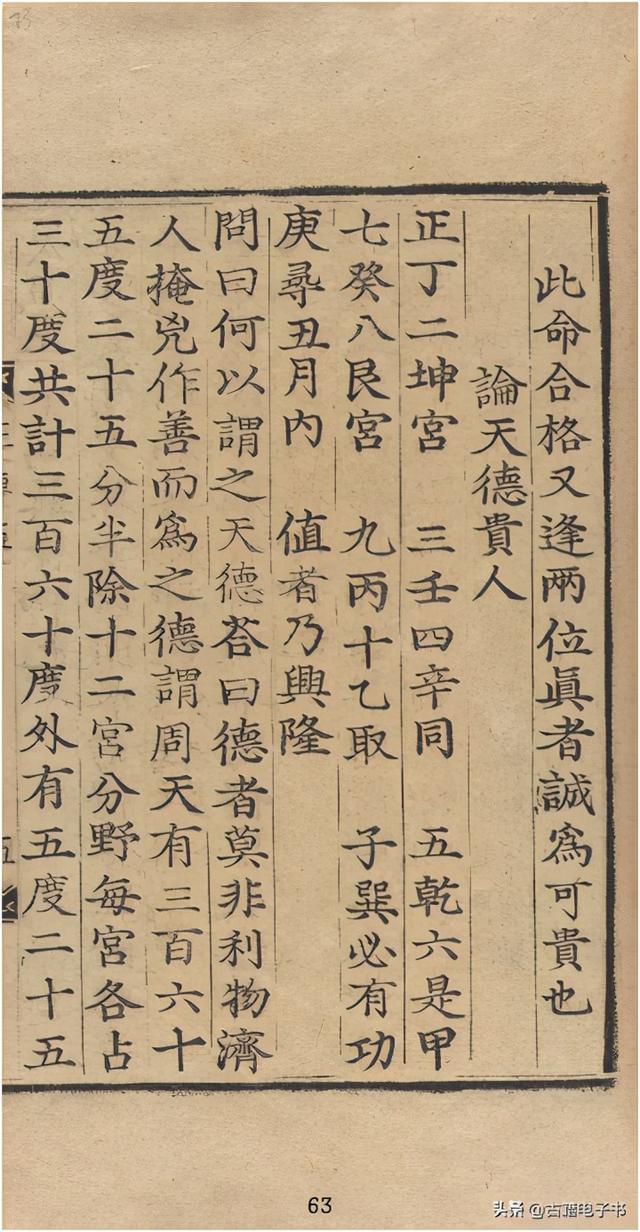 此命合格又逢兩位眞者誠爲可貴也
論天德貴人
正丁二坤宮 三壬四辛同 五乾六是甲
七癸八艮宮 九丙十乙取 子巽必有功
庚尋丑月內 值者乃興隆
問曰何以謂之天德荅曰德者莫非利物濟
人掩兇作善而爲之德謂周天有三百六十
五度二十五分半除十二宮分野每宮各占
三十度共計三百六十度外有五度二十五
63
头条 @古籍电子书